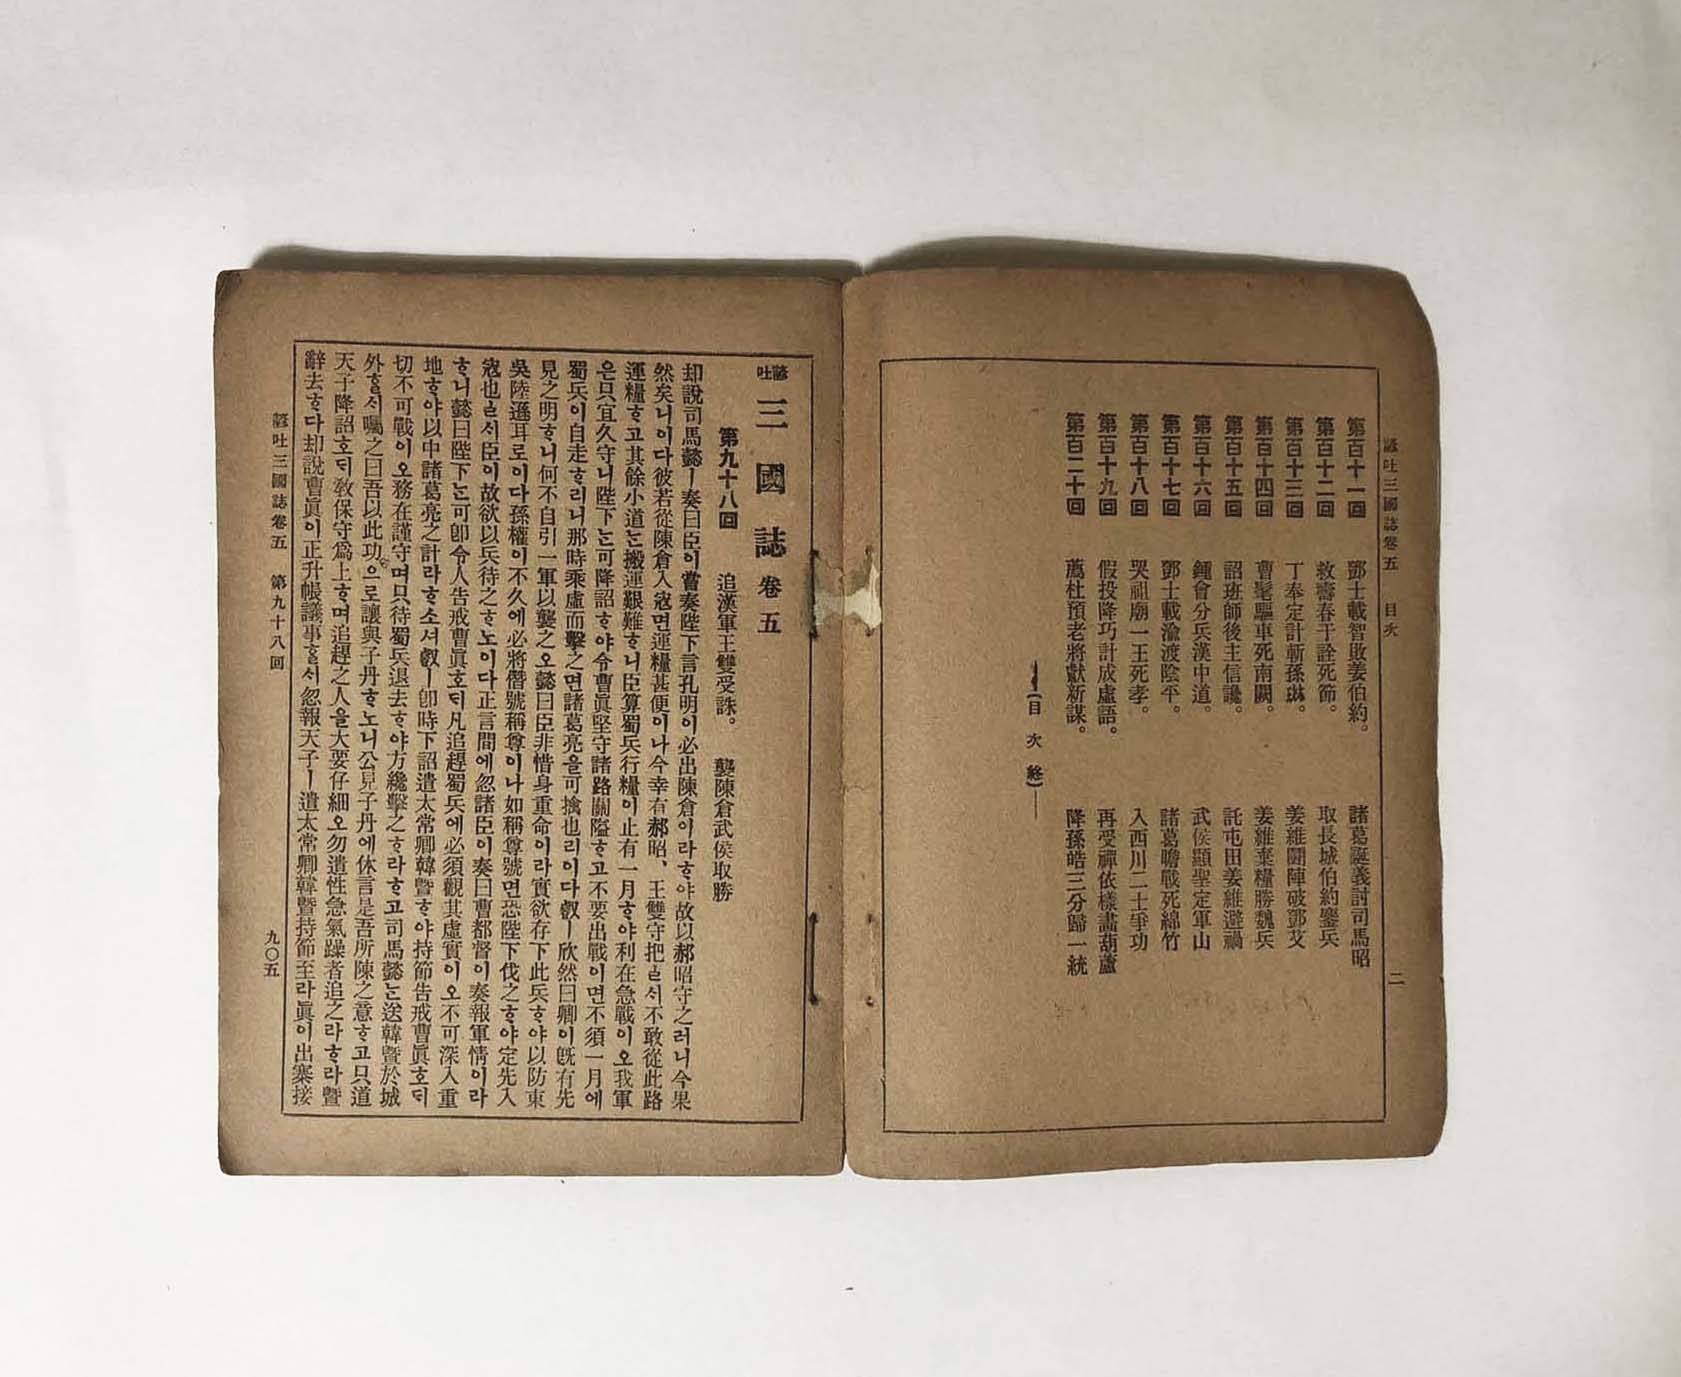 諺吐三國誌卷五 目次 二
第百十一回 鄧士載智敗姜伯約。 諸葛誕義討司馬昭
第百十二回 救壽春于詮死節。 取長城伯約鏖兵
第百十三回 丁奉定計斬孫琳。 姜維鬪陣破鄧艾
第百十四回 曹髦驅車死南闕。 姜維棄糧勝魏兵
第百十五回 詔班師後主信讒。 託屯田姜維避禍
第百十六回 鍾會分兵漢中道。 武侯顯聖定軍山
第百十七回 鄧士載渝渡陰平。 諸葛瞻戰死綿竹
第百十八回 哭祖廟一王死孝。 入西川二士爭功
第百十九回 假投降巧計成虛語。 再受禪依樣畵葫蘆
第百二十回 薦杜預老將獻新謀。 降孫皓三分歸一統
(目次終)
諺吐 三國誌 卷五
第九十八回 追漢軍王雙受誅。 襲陳倉武侯取勝
却說司馬懿ㅣ奏曰臣이嘗奏陛下言孔明이必出陳倉이라ᄒᆞ야故以郝昭守之러니今果
然矣니이다彼若從陳倉入寇면運糧甚便이나今幸有郝昭、王雙守把ㄹᄉᆡ不敢從此路
運糧ᄒᆞ고其餘小道ᄂᆞᆫ搬運艱難ᄒᆞ니臣算蜀兵行糧이止有一月ᄒᆞ야利在急戰이오我軍
은只宜久守니陛下ᄂᆞᆫ可降詔ᄒᆞ야令曹眞堅守諸路關隘ᄒᆞ고不要出戰이면不須一月에
蜀兵이自走ᄒᆞ리니那時乘虛而擊之면諸葛亮을可擒也리이다叡ㅣ欣然曰卿이旣有先
見之明ᄒᆞ니何不自引一軍以襲之오懿曰臣非惜身重命이라實欲存下此兵ᄒᆞ야以防東
吳陸遜耳로이다孫權이不久에必將僭號稱尊이나如稱尊號면恐陛下伐之ᄒᆞ야定先入
寇也ㄹᄉᆡ臣이故欲以兵待之ᄒᆞ노이다正言間에忽諸臣이奏曰曹都督이奏報軍情이라
ᄒᆞ니懿曰陛下ᄂᆞᆫ可卽令人告戒曹眞호ᄃᆡ凡追趕蜀兵에必須觀其虛實이오不可深入重
地ᄒᆞ야以中諸葛亮之計라ᄒᆞ소셔叡ㅣ卽時下詔遣太常卿韓曁ᄒᆞ야持節告戒曹眞호ᄃᆡ
切不可戰이오務在謹守며只待蜀兵退去ᄒᆞ야方纔擊之ᄒᆞ라ᄒᆞ고司馬懿ᄂᆞᆫ送韓曁於城
外ᄒᆞᆯᄉᆡ囑之曰吾以此功으로讓與子丹ᄒᆞ노니公見子丹에休言是吾所陳之意ᄒᆞ고只道
天子降詔호ᄃᆡ敎保守爲上ᄒᆞ며追趕之人을大要仔細오勿遣性急氣躁者追之라ᄒᆞ라曁
辭去ᄒᆞ다却說曹眞이正升帳議事ᄒᆞᆯᄉᆡ忽報天子ㅣ遣太常卿韓曁持節至라眞이出寨接
諺吐三國誌卷五 第九十八回 九〇五